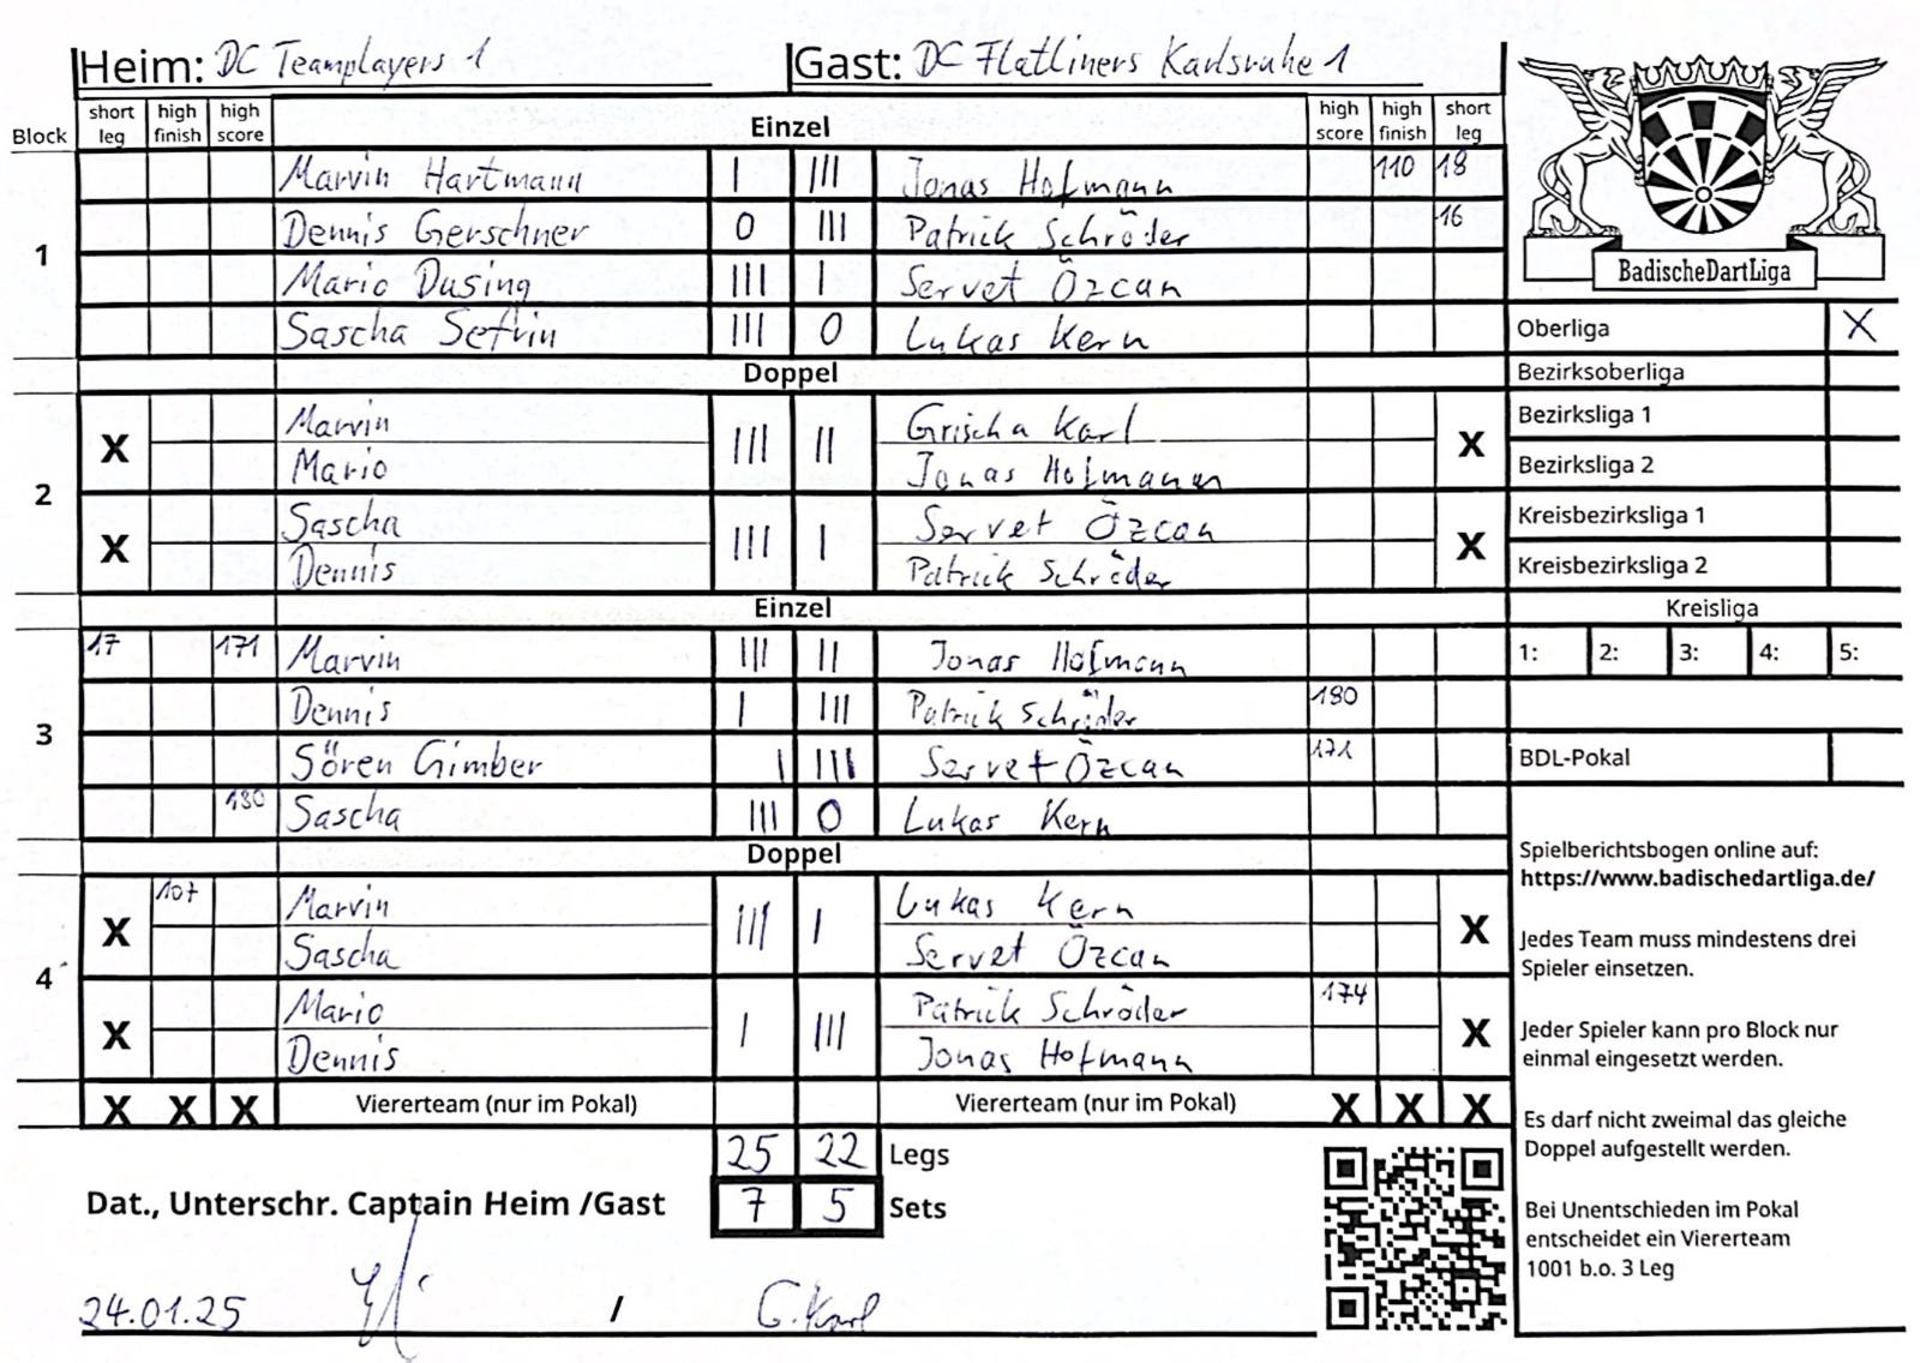 Heim: DC Teamplayers 1 Gast: DC Flatliners Karlsruhe 1
Block short leg high finish high score Einzel high score high finish short leg
Marvin Hartmann I III Jonas Hofmann 110 18
1 Dennis Gerschner 0 III Patrick Schröder 16
Mario Dusing III I Servet Özcan
Sascha Sefrin III 0 Lukas Kern
Doppel
X Marvin III II Grischa Karl X
Mario Jonas Hofmann
2
X Sascha III I Servet Özcan X
Dennis Patrick Schröder
Einzel
17 171 Marvin III II Jonas Hofmann
Dennis I III Patrick Schröder 180
3 Sören Gimber I III Servet Özcan 171
180 Sascha III 0 Lukas Kern
Doppel
X 107 Marvin III I Lukas Kern X
Sascha Servet Özcan
4
X Mario I III Patrick Schröder 174 X
Dennis Jonas Hofmann
X X X Viererteam (nur im Pokal) Viererteam (nur im Pokal) X X X
25 22 Legs
Dat., Unterschr. Captain Heim /Gast 7 5 Sets
24.01.25 / G. Karl
BadischeDartLiga
Oberliga X
Bezirksoberliga
Bezirksliga 1
Bezirksliga 2
Kreisbezirksliga 1
Kreisbezirksliga 2
Kreisliga
1: 2: 3: 4: 5:
BDL-Pokal
Spielberichtsbogen online auf:
https://www.badischedartliga.de/
Jedes Team muss mindestens drei
Spieler einsetzen.
Jeder Spieler kann pro Block nur
einmal eingesetzt werden.
Es darf nicht zweimal das gleiche
Doppel aufgestellt werden.
Bei Unentschieden im Pokal
entscheidet ein Viererteam
1001 b.o. 3 Leg